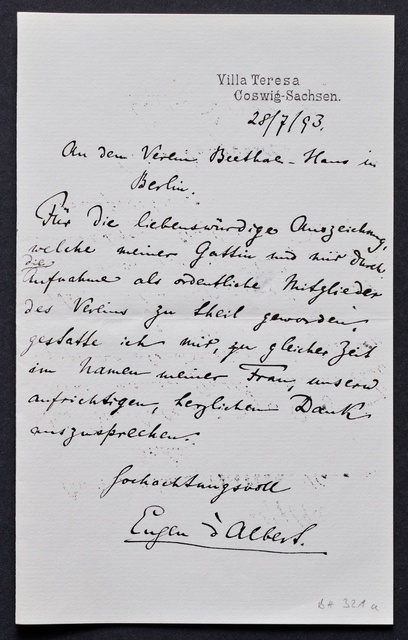 Villa Teresa
Coswig-Sachsen.
28/7/93.
An den Verein Beethov-Haus in
Berlin.
Für die liebenswürdige Auszeichnung,
welche meiner Gattin und mir durch
die
Aufnahme als ordentliche Mitglieder
des Vereins zu theil geworden,
gestatte ich mir, zu gleicher Zeit
im Namen meiner Frau, unsern
aufrichtigen, herzlichen Dank
auszusprechen.
Hochachtungsvoll
Eugen d'Albert.
BH 321 a